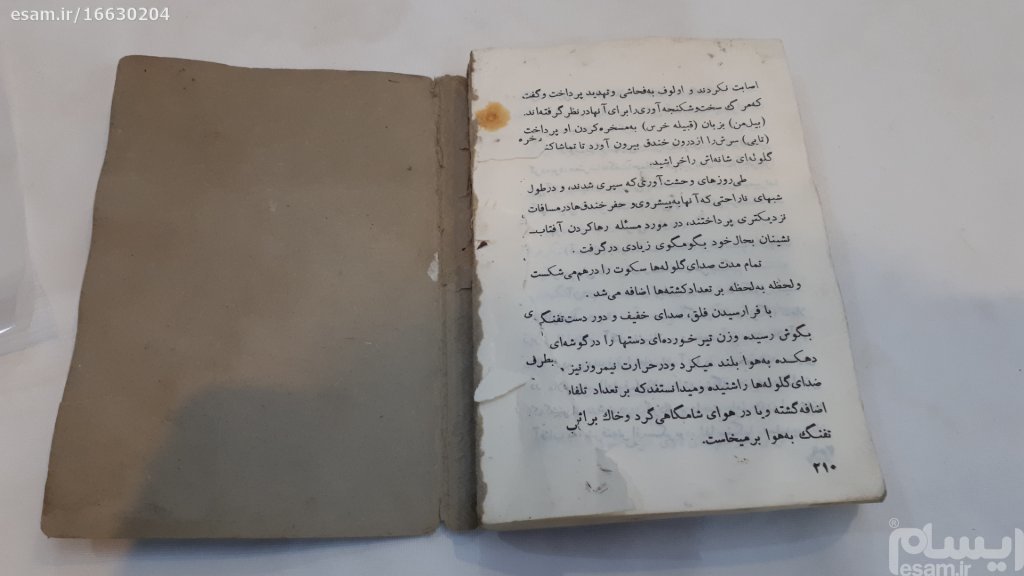 esam.ir/16630204
اصابت نکردند و اولوف به‌فحاشی وتهدید پرداخت وگفت
که‌مرگ سخت‌وشکنجه‌آوری‌رابرای آنهادرنظرگرفته‌اند.
(بیل‌من) بزبان (قبیله خرس) به‌مسخره‌کردن او پرداخت
(تایی) سرش‌را ازدرون خندق بیرون آورد تا تماشاکند
گلوله‌ای شانه‌اش راخراشید.
طی‌روزهای وحشت‌آوری‌که سپری شدند، و درطول
شبهای ناراحتی‌که‌آنهابه‌پیشروی‌و حفرخندق‌هادرمسافات
نزدیکتری پرداختند، در مورد مسئله رهاکردن آفتاب
نشینان بحال‌خود بگومگوی زیادی درگرفت .
تمام مدت صدای‌گلوله‌ها سکوت را درهم‌می‌شکست
ولحظه به‌لحظه بر تعدادکشته‌ها اضافه می‌شد .
با فرارسیدن فلق، صدای خفیف و دور دست‌تفنگی
بگوش رسیده وزن تیرخورده‌ای دستها را درگوشه‌ای
دهکده به‌هوا بلند میکرد ودرحرارت نیمروزنیز بطرف
صدای‌گلوله‌ها راشنیده ومیدانستندکه بر تعداد تلفات
اضافه‌گشته ویا در هوای شامگاهی‌گرد وخاك براثر
تفنگ به‌هوا برمیخاست.
۲۱۰
ایسام
esam.ir